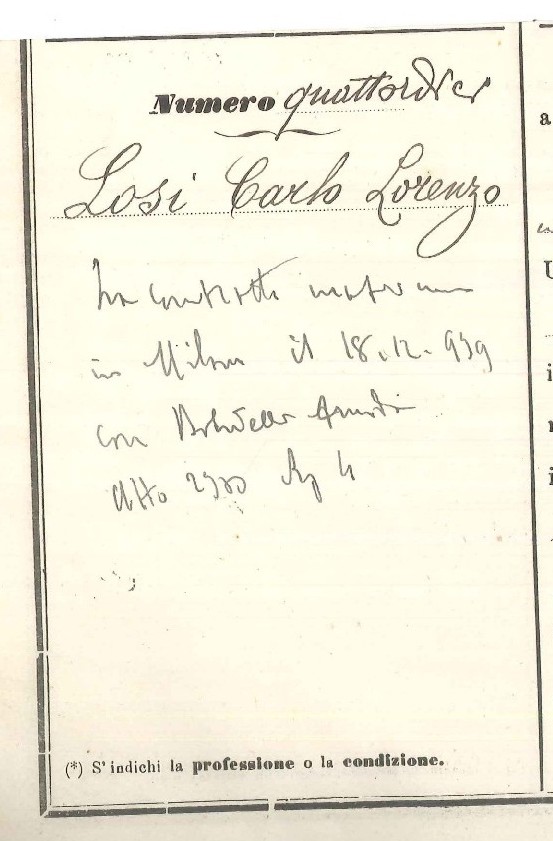 Numero quattordici
Losi Carlo Lorenzo
ha contratto matrimonio
in Milano il 18.12.939
con
Atto
(*) S'indichi la professione o la condizione.
a
U
i
i